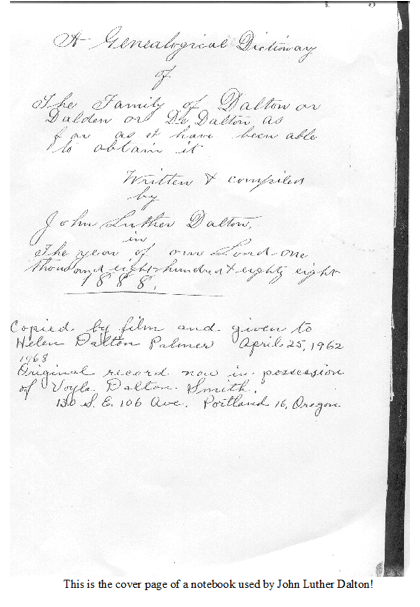 A Genealogical Dictionary
of
The Family of Dalton or
Dalden or De Dalton as
far as I have been able
to obtain it
Written & compiled
by
John Luther Dalton,
in
The year of our Lord one
thousand eight hundred & eighty eight
1888.
Copied by film and given to
Helen Dalton Palmer April 25, 1962
1968
Original record now in possession
of Voyla Dalton Smith.
130 S.E. 106 Ave. Portland 16, Oregon
This is the cover page of a notebook used by John Luther Dalton!